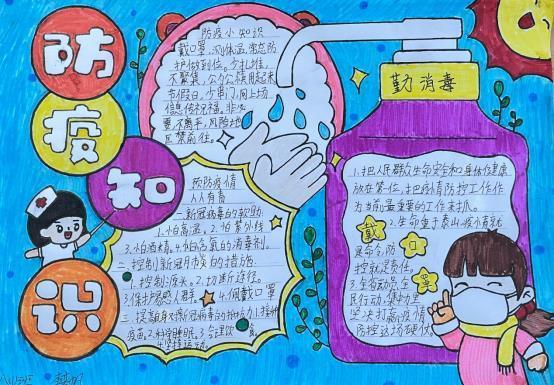 防
疫
知
识
防疫小知识
戴口罩,测体温,常态防
护做到位,少扎堆,
不聚集,公勺公筷用起来
节假日,少串门,网上场
信息传祝福。非必
要不离丰,风险地
区禁前往。
预防疫情
人人有责
一.新冠病毒的软肋.
1.怕高温.2.怕紫外线
3.怕酒精.4.怕含氯的消毒剂.
二.控制新冠肺炎的措施.
1.控制源头.2.切断途径.
3.保护易感人群.4.佩戴口罩
三.提高身对新冠病毒的抵抗力1.接种
疫苗.2.科学睡眠.3.合理饮
4.坚持运动.
勤消毒
1.把人民群众生命安全和身体健康
放在第一位,把疫情防控工作作
为当前最重要的工作来抓。
2.生命重于泰山.疫情就
是命令,防
控就是责任。
3.全省动员,全
民行动,集物里
坚决打赢疫情
防控这场硬仗
戴
口
罩